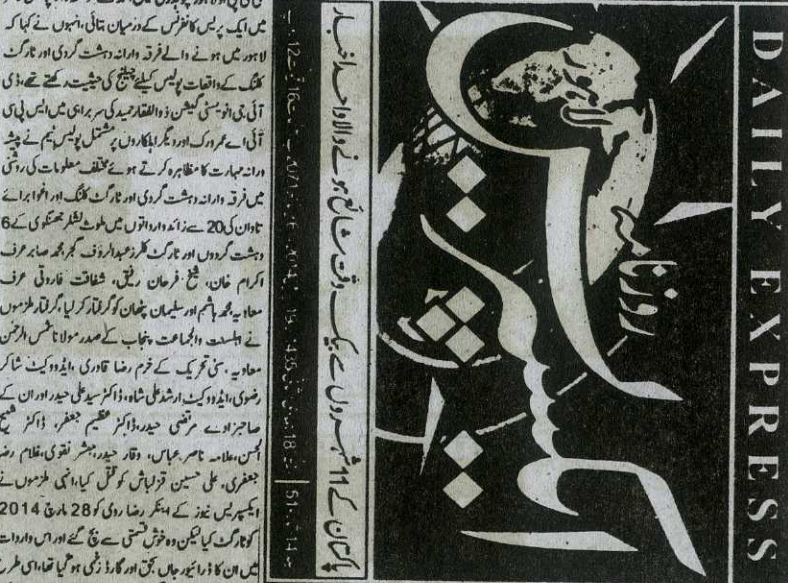 میں ایک پریس کانفرنس کے درمیان بتائی، انہوں نے کہا کہ
لاہور میں ہونے والے فرقہ وارانہ دہشت گردی اور ٹارگٹ
کلنگ کے واقعات پولیس کیلئے چیلنج کی حیثیت رکھتے تھے، ڈی
آئی جی انویسٹی گیشن ذوالفقار حمید کی سربراہی میں ایس پی سی
آئی اے عمر ورک اور دیگر اہلکاروں پر مشتمل پولیس ٹیم نے پیشہ
ورانہ مہارت کا مظاہرہ کرتے ہوئے مختلف معلومات کی روشنی
میں فرقہ وارانہ دہشت گردی اور ٹارگٹ کلنگ اور اغوا برائے
تاوان کی 20 سے زائد وارداتوں میں ملوث لشکر جھنگوی کے 6
دہشت گردوں اور ٹارگٹ کلرز عبدالرؤف گجر، محمد صابر عرف
اکرام خان، شیخ فرحان رفیق، شفاقت فاروقی عرف
معاویہ، محمد ہاشم اور سلیمان پٹھان کو گرفتار کر لیا، گرفتار ملزموں
نے اہلسنت والجماعت پنجاب کے صدر مولانا شمس الرحمن
معاویہ، سنی تحریک کے خرم رضا قادری، ایڈووکیٹ شاکر
رضوی، ایڈووکیٹ ارشد علی شاہ، ڈاکٹر سید علی حیدر اور ان کے
صاحبزادے مرتضی حیدر، ڈاکٹر عظیم جعفر، ڈاکٹر شبیہ
الحسن، علامہ ناصر عباس، وقار حیدر، مبشر نقوی، غلام رضا
جعفری، علی حسین قزلباش کو قتل کیا، انہی ملزموں نے
ایکسپریس نیوز کے اینکر رضا رومی کو 28 مارچ 2014
کو ٹارگٹ کیا لیکن وہ خوش قسمتی سے بچ گئے اور اس واردات
میں ان کا ڈرائیور جاں بحق اور گارڈ زخمی ہو گیا تھا، اسی طرح
پاکستان کے 11 شہروں سے بیک وقت شائع ہونے والا واحد اخبار
روزنامہ
ایکسپریس
لاہور
DAILY EXPRESS